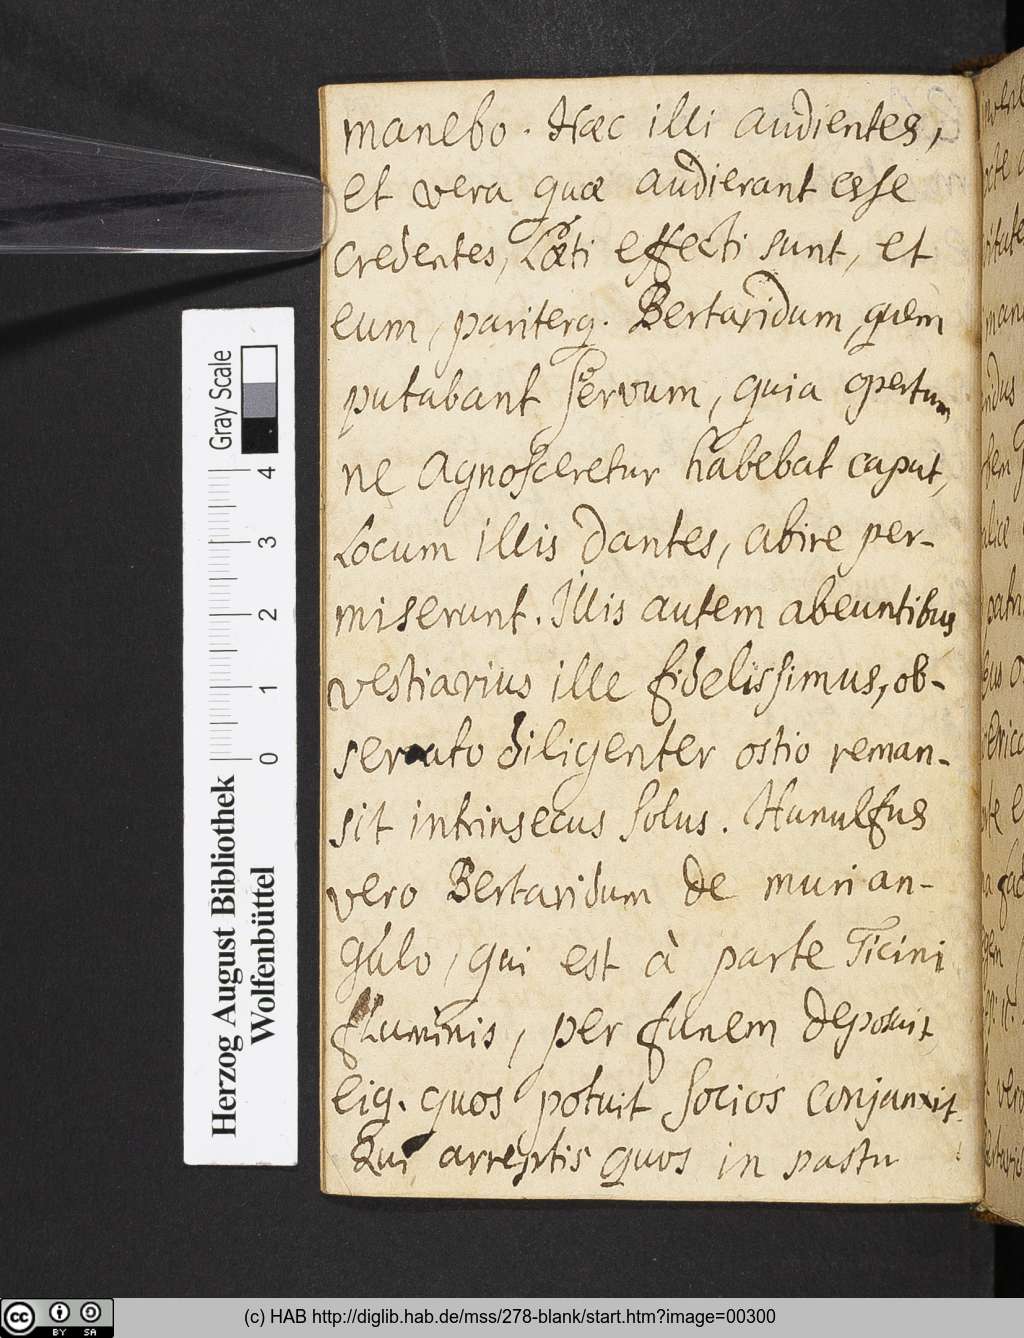 manebo. Hæc illi audientes,
et vera quæ audierant esse
credentes, Læti effecti sunt, et
eum, pariterq. Bertaridum quem
putabant servum, quia opertum
ne agnosceretur habebat caput,
Locum illis dantes, abire per-
miserunt. Illis autem abeuntibus
vestiarius ille fidelissimus, ob-
serato diligenter ostio reman-
sit intrinsecus solus. Hunulfus
vero Bertaridum de muri an-
gulo, qui est à parte Ticini
fluminis, per funem deposuit
eiq. quos potuit socios conjunxit.
Qui arreptis quos in pastu
Gray Scale
4
3
2
1
0
Herzog August Bibliothek
Wolfenbüttel
cc BY SA
(c) HAB http://diglib.hab.de/mss/278-blank/start.htm?image=00300